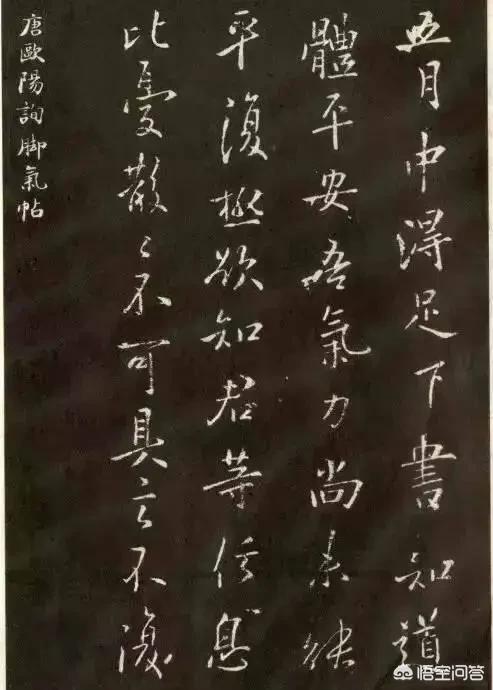 五月中得足下書知道
體平安吾氣力尚未能
平復極欲知君等信息
比憂散〻不可具言不復
唐歐陽詢脚氣帖
悟空问答